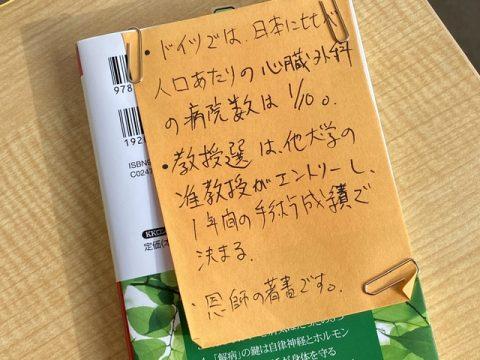 ・ドイツでは、日本にもべ
人口あたりの心臓外科
の病院数は1/10。
・教授選は、他大学の
准教授がエントリーし、
1年間の手術成績で
決まる。
・恩師の著書です。
978
192
ISBN
C0247
KKロン
定価(本
「解病」の鍵は自律神経とホルモン
が身体を守る